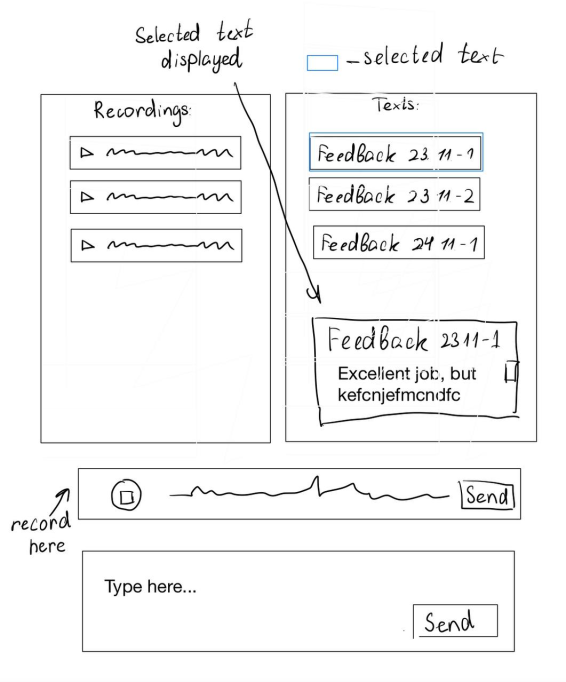 Selected text
displayed
– selected text
Recordings:
Texts:
FeedBack 23 11-1
FeedBack 23 11-2
FeedBack 24 11-1
FeedBack 23 11-1
Excellent job, but
kefcnjefmcndfc
Send
record
here
Type here...
Send